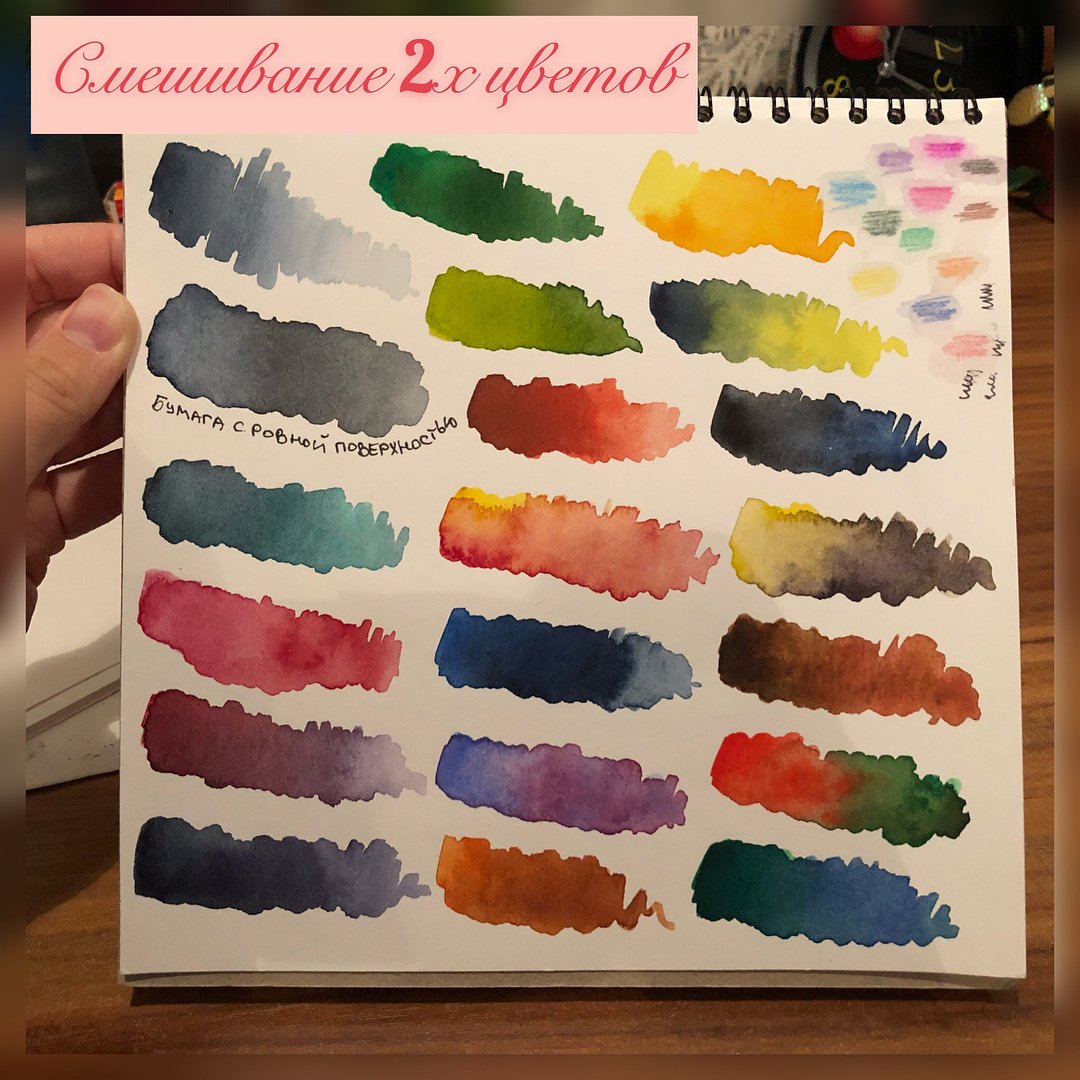 Смешивание 2х цветов
БУМАГА С РОВНОЙ ПОВЕРХНОСТЬЮ